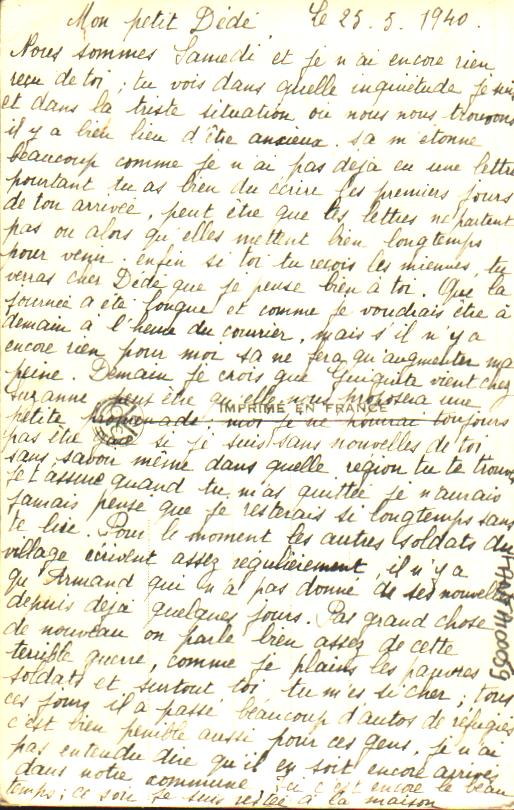 Mon petit Dédé Le 25.5.1940.
Nous sommes Samedi et je n'ai encore rien
reçu de toi ; tu vois dans quelle inquietude je suis
et dans la triste situation où nous nous trouvons
il y a bien lieu d'être anxieux. sa m'étonne
beaucoup comme je n'ai pas dejà eu une lettre
pourtant tu as bien du écrire les premiers jours
de ton arrivée, peut être que les lettres ne partent
pas ou alors qu'elles mettent bien longtemps
pour venir. enfin si toi tu reçois les miennes, tu
verras cher Dédé que je pense bien à toi. Que la
journée a été longue et comme je voudrais être à
demain a l'heure du courrier, mais s'il n'y a
encore rien pour moi sa ne fera qu'augmenter ma
peine. Demain je crois que vient chez
Suzanne peut être qu'elle nous proposera une
IMPRIMÉ EN FRANCE
petite promenade. moi je ne pourrai toujours
pas être si je suis sans nouvelles de toi
sans savoir même dans quelle region tu te trouves
je t'assure quand tu m'as quittée je n'aurais
jamais pensé que je resterais si longtemps sans
te lire. Pour le moment les autres soldats du
village écrivent assez régulièrement, il n'y a
qu'Armand qui n'a pas donné de ses nouvelles
depuis dejà quelques jours. Pas grand chose
de nouveau on parle bien assez de cette
terrible guerre, comme je plains les pauvres
soldats et surtout toi tu m'es si cher ; tous
ces jours il a passé beaucoup d'autos de refugiés
c'est bien penible aussi pour ces gens, je n'ai
pas entendu dire qu'il en soit encore arrivés
dans notre commune. Ici c'est encore le beau
temps ; ce soir je suis restée à la maison